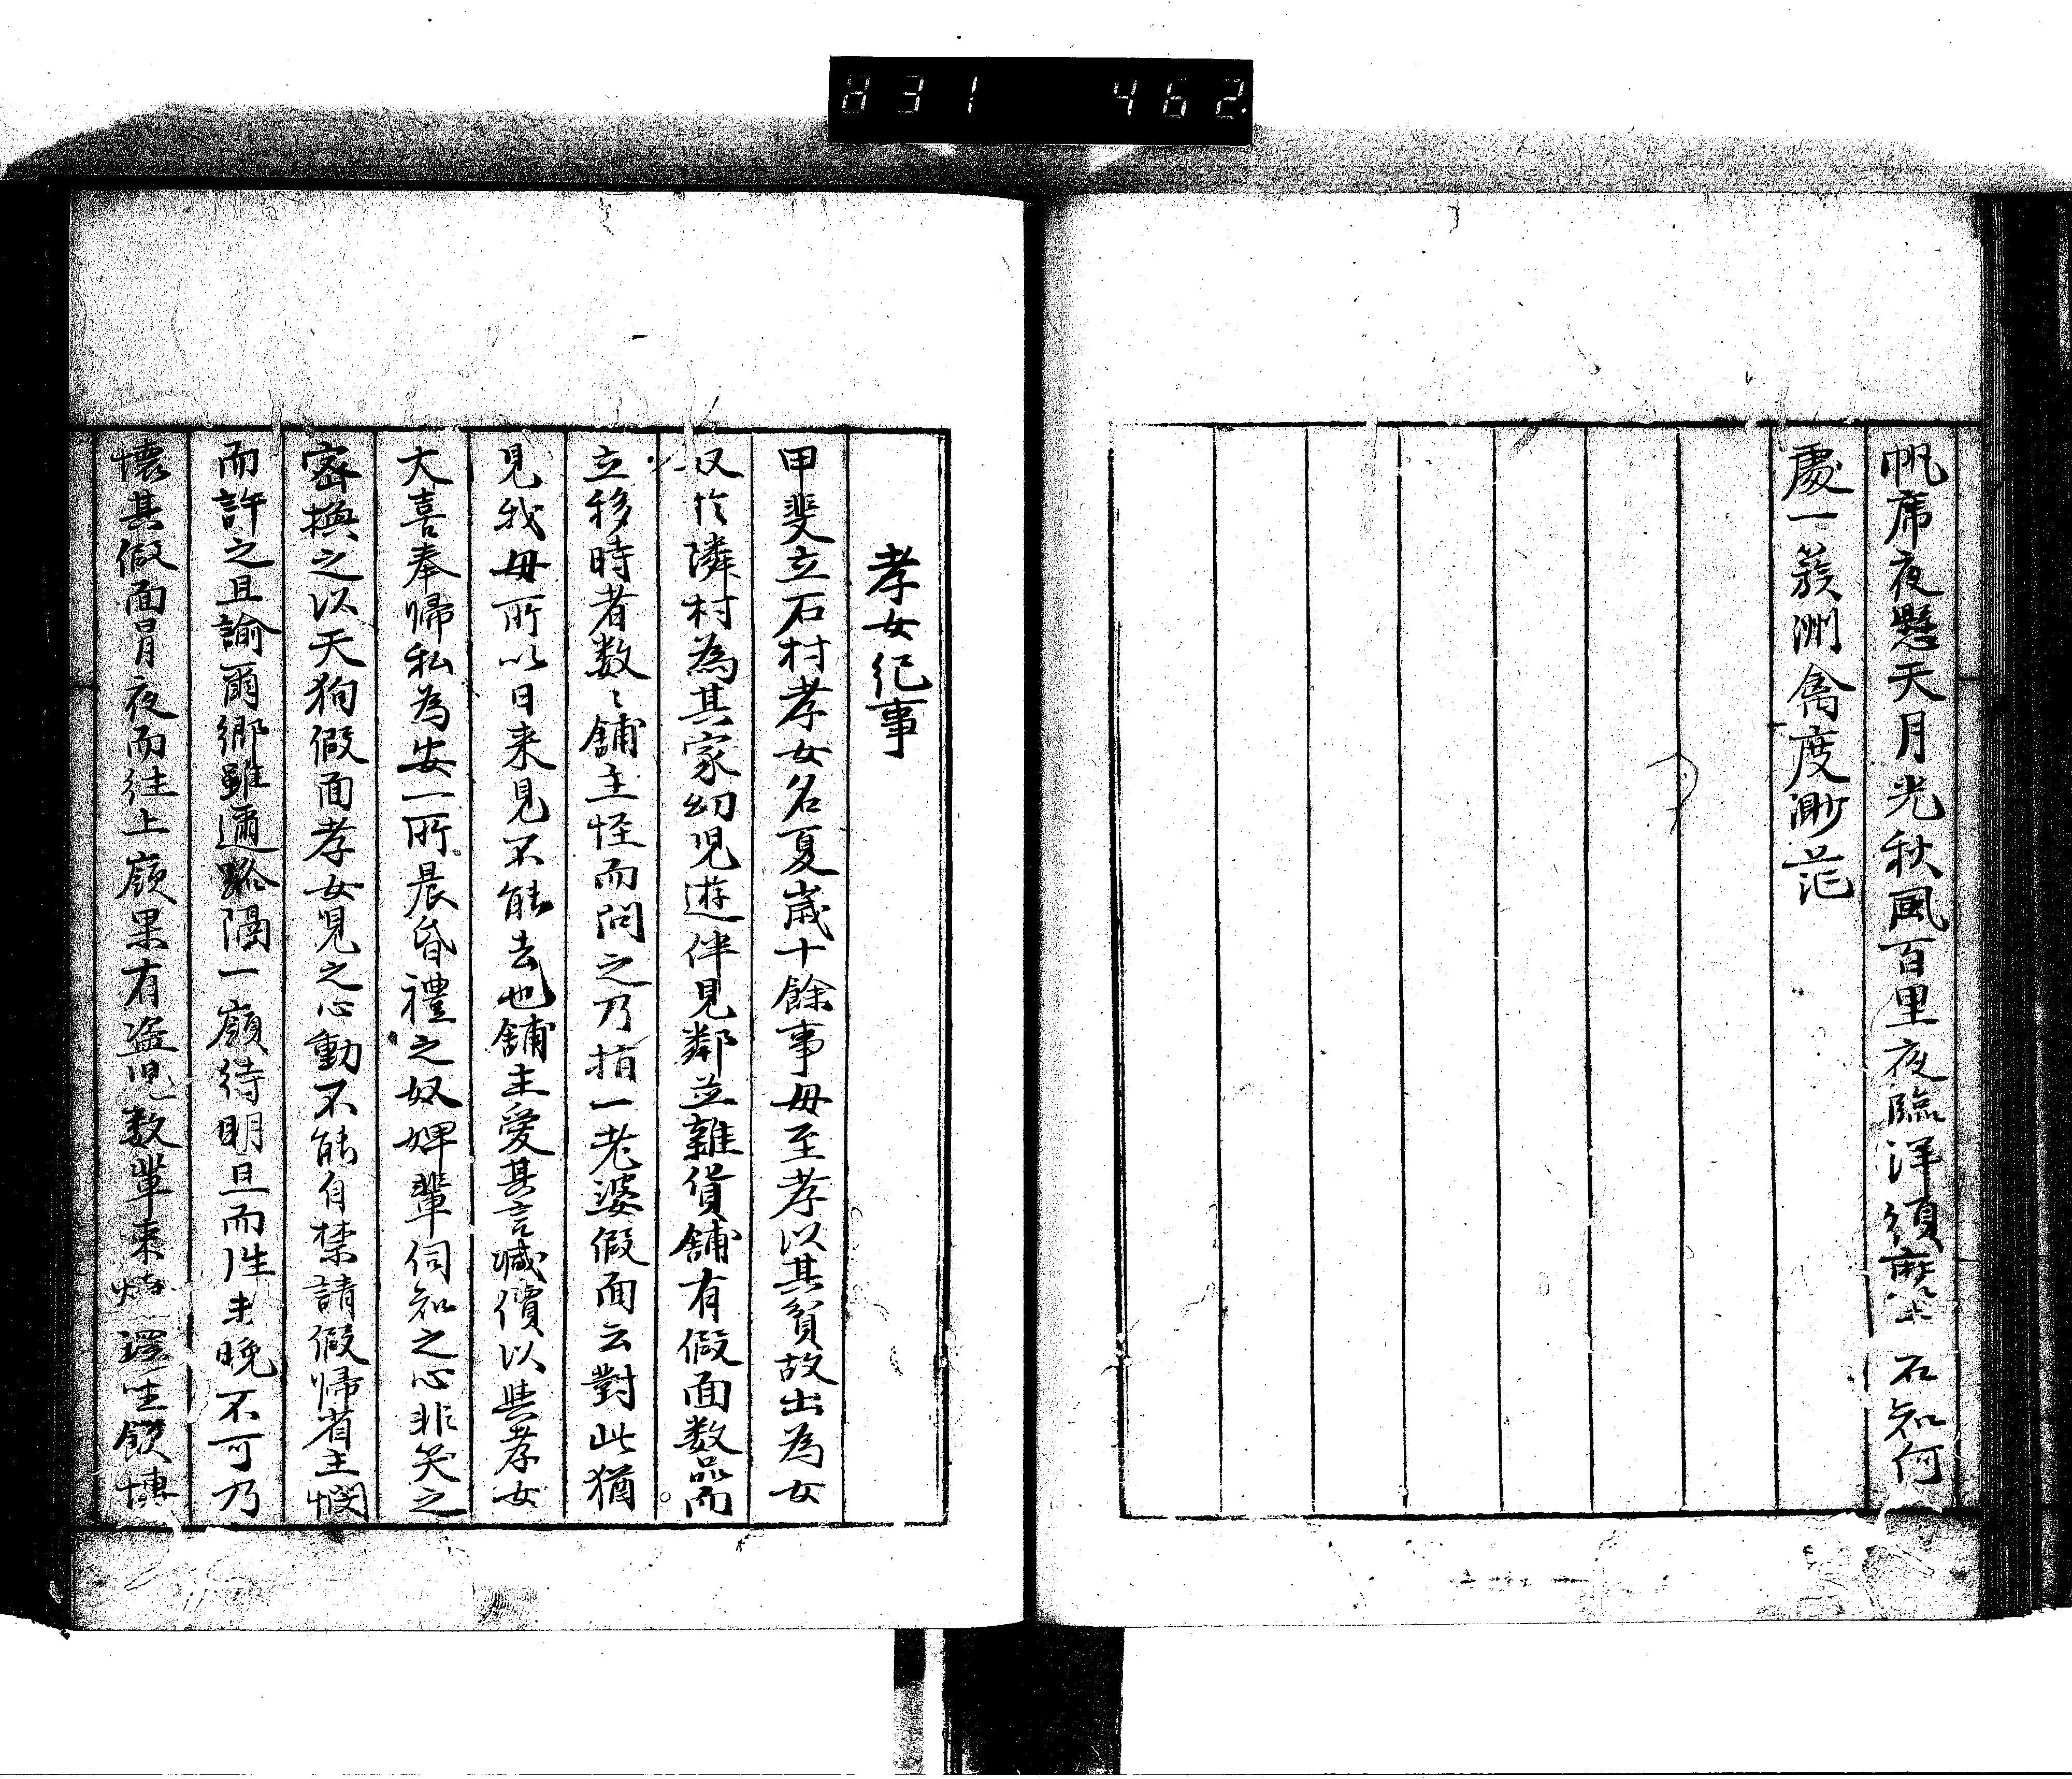 831 462.
帆席夜懸天月光秋風百里夜臨洋須 不知何
處一簇洲禽度渺茫
孝女紀事
甲斐立石村孝女名夏歳十餘事毋至孝以其貧故出為女
奴於隣村為其家幼児遊伴見鄰並雜貨舗有假面数品而
立移時者数〻舗主怪而問之乃指一老婆假面云對此猶
見我毋所以日来見不能去也舗主愛其言減價以與孝女
大喜奉帰私為安一所晨昏禮之奴婢輩伺知之心非笑之
密換之以天狗假面孝女見之心動不能自禁請假帰省主憫
而許之且諭爾郷雖邇路隔一嶺待明旦而往未晩不可乃
懐其假面冒夜而往上嶺果有盗児数輩来 環坐飲博